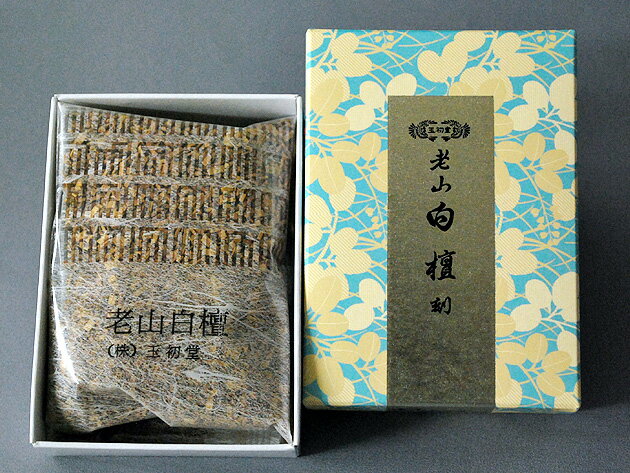 老山白檀
(株)玉初堂
玉初堂
老山
白
檀
刻